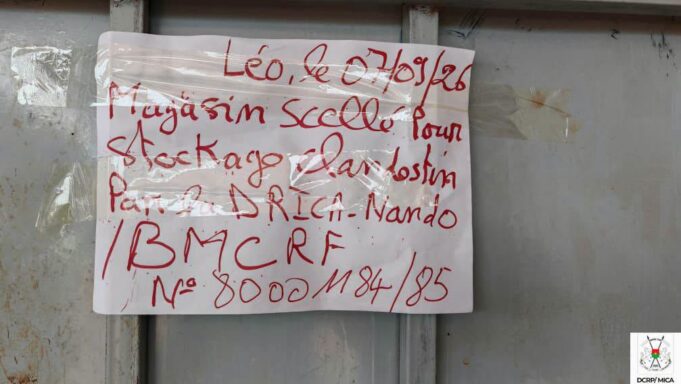 Léo, le 07/09/26
Magasin scellé Pour
stockage clandestin
Par la DRICA-Nando
/BMCRF
N° 80001184/85
DCRP/ MICA